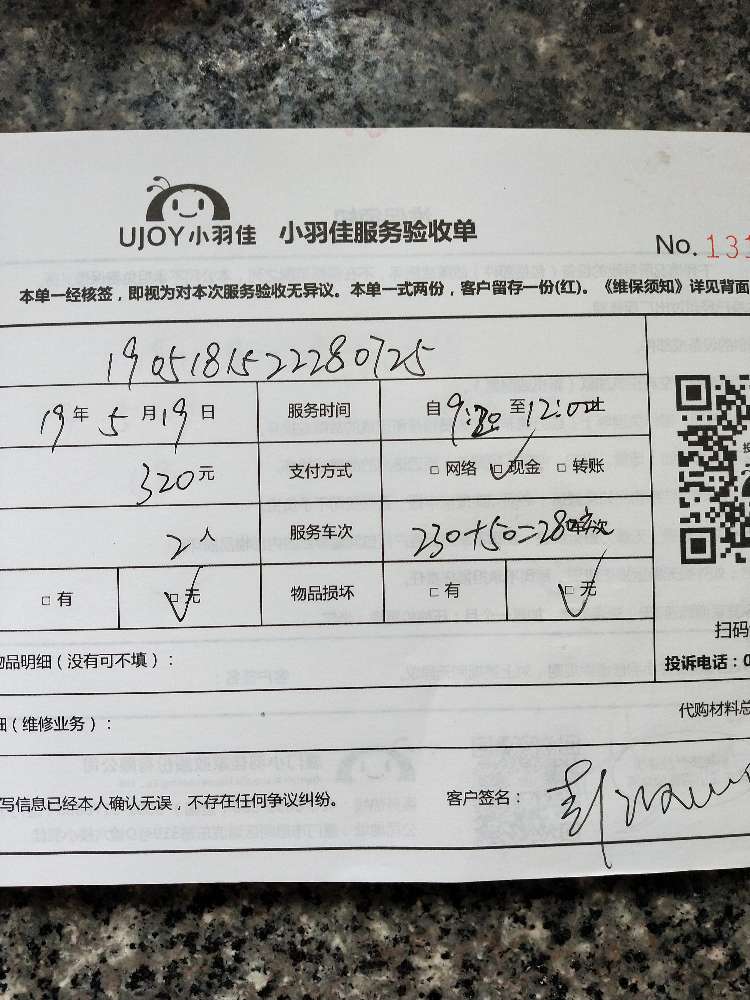 UJOY小羽佳 小羽佳服务验收单
No. 131
本单一经核签，即视为对本次服务验收无异议。本单一式两份，客户留存一份(红)。《维保须知》详见背面
19051815222280725
19年5月19日 服务时间 自9:20至12:00止
320元 支付方式 □网络 □现金 □转账
2人 服务车次 230+50=280
□有 □无 物品损坏 □有 □无
物品明细（没有可不填）：
扫码
投诉电话：0
细（维修业务）：
代购材料总
写信息已经本人确认无误，不存在任何争议纠纷。 客户签名：